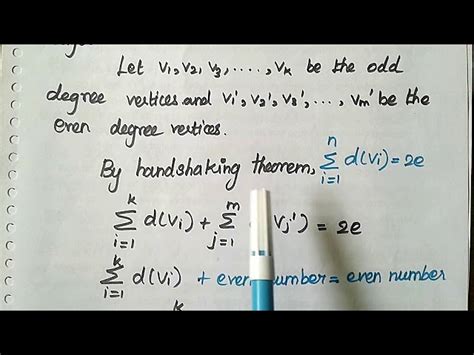 Let v₁, v₂, v₃, ....., vₖ be the odd
degree vertices and v₁', v₂', v₃', ..., vₘ' be the
even degree vertices.
By handshaking theorem, ∑ᵢ₌₁ⁿ d(vᵢ) = 2e
∑ᵢ₌₁ᵏ d(vᵢ) + ∑ⱼ₌₁ᵐ (vⱼ') = 2e
∑ᵢ₌₁ᵏ d(vᵢ) + even number = even number